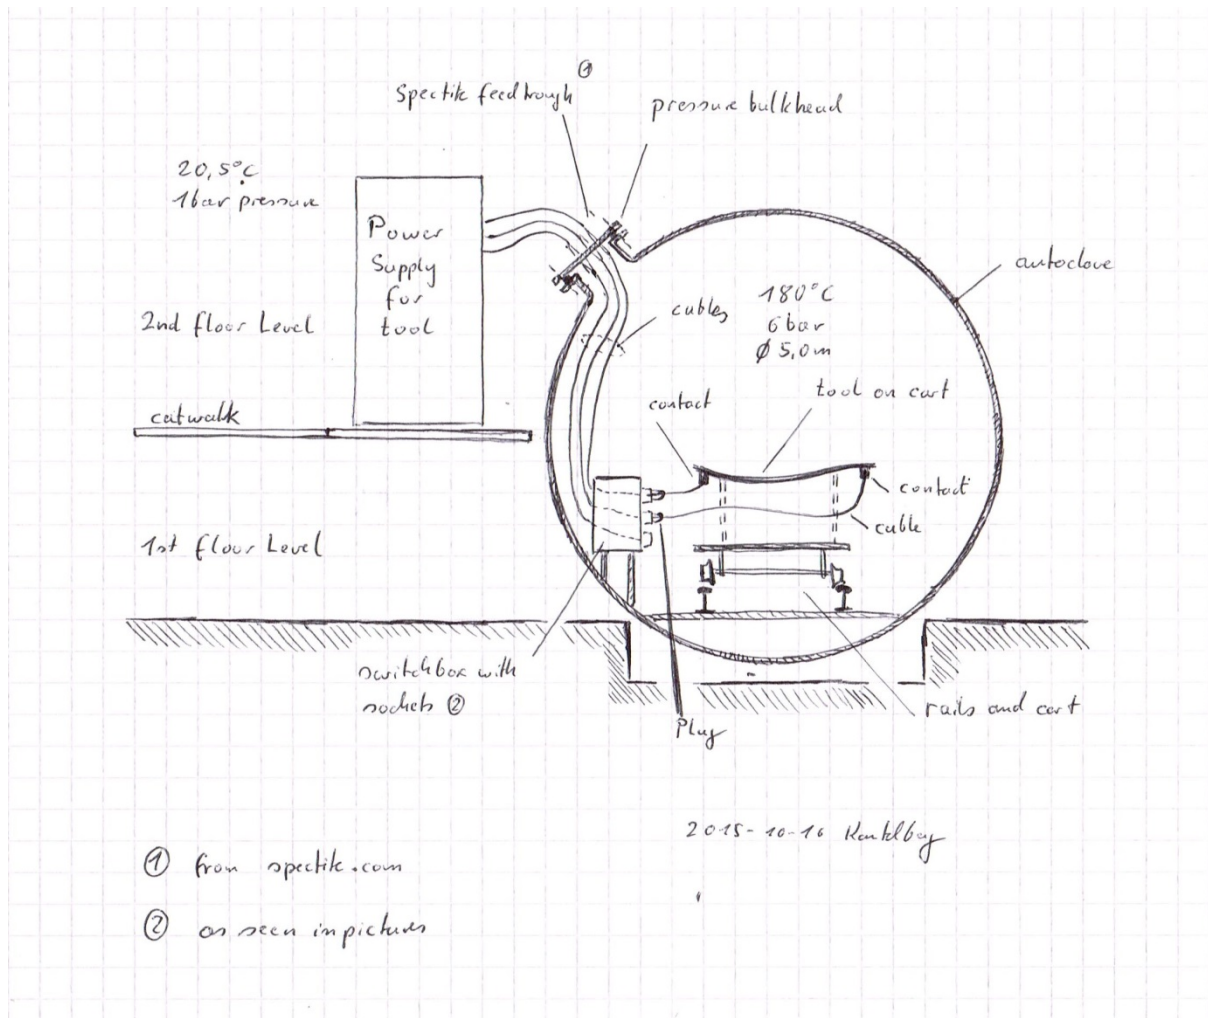 ①
Spectite feedtrough
pressure bulkhead
20,5°C
1bar pressure
Power
Supply
for
tool
autoclave
2nd floor Level
cables
180°C
6 bar
Ø 5,0m
tool on cart
contact
catwalk
contact
cable
1st floor Level
switchbox with
sockets ②
Plug
rails and cart
2015-10-16
① from spectite.com
② as seen in pictures